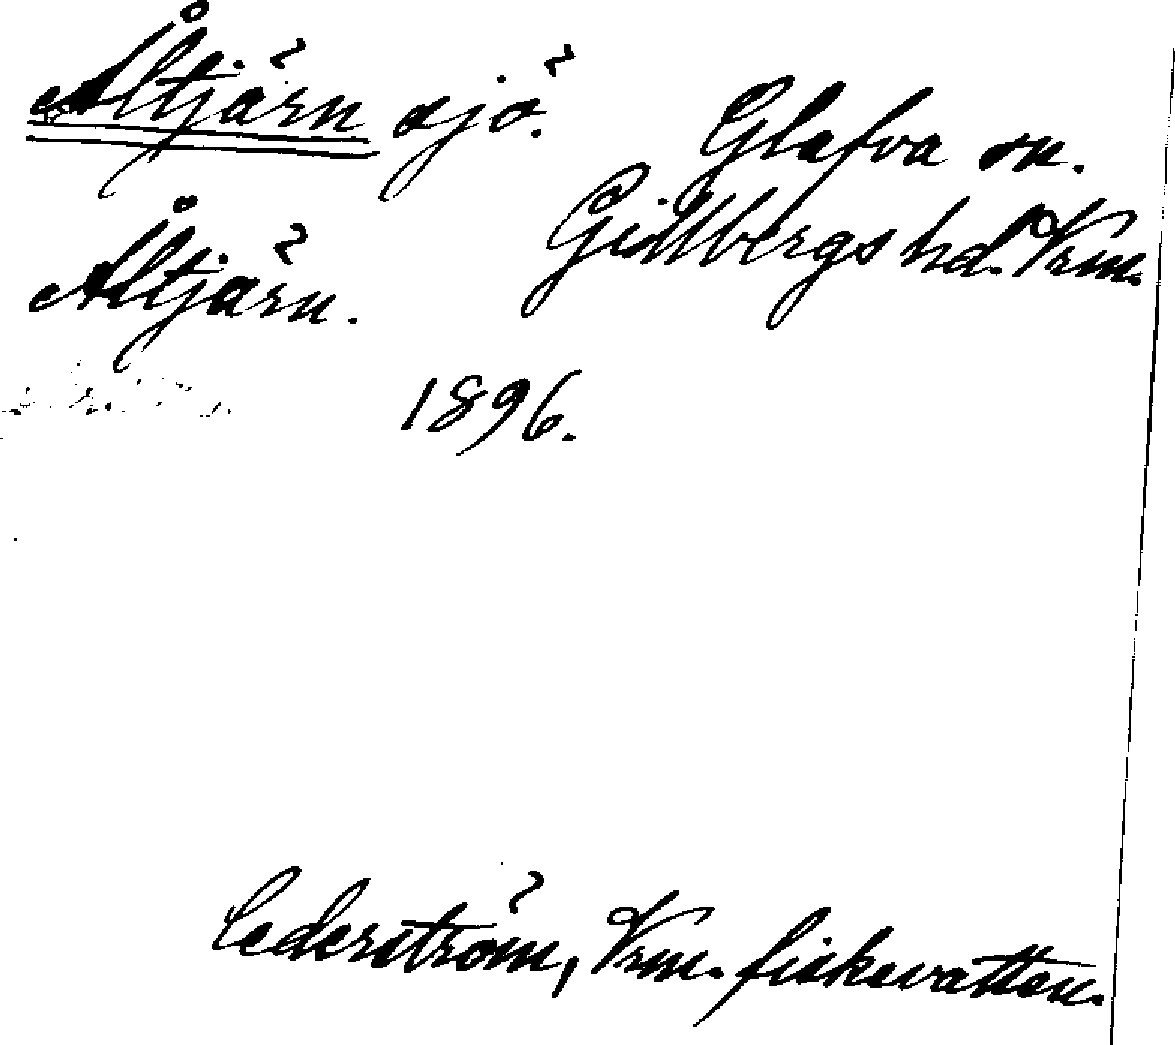 Åltjärn sjö.
Glafva sn.
Gillbergs hd. Vrm.
Åltjärn.
1896.
Cederström, Vrm. fiskevatten.